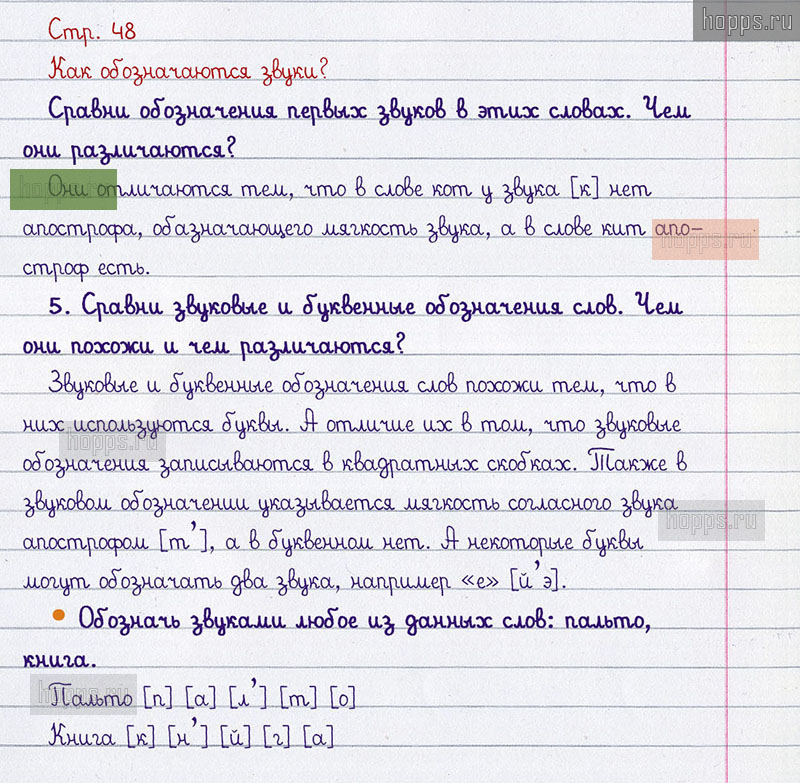 hopps.ru
Стр. 48
Как обозначаются звуки?
Сравни обозначения первых звуков в этих словах. Чем
они различаются?
Они отличаются тем, что в слове кот у звука [к] нет
апострофа, обазначающего мягкость звука, а в слове кит апо-
строф есть.
5. Сравни звуковые и буквенные обозначения слов. Чем
они похожи и чем различаются?
Звуковые и буквенные обозначения слов похожи тем, что в
них используются буквы. А отличие их в том, что звуковые
обозначения записываются в квадратных скобках. Также в
звуковом обозначении указывается мягкость согласного звука
апострофом [т’], а в буквенном нет. А некоторые буквы
могут обозначать два звука, например «е» [й’э].
• Обозначь звуками любое из данных слов: пальто,
книга.
Пальто [п] [а] [л’] [т] [о]
Книга [к] [н’] [й] [г] [а]